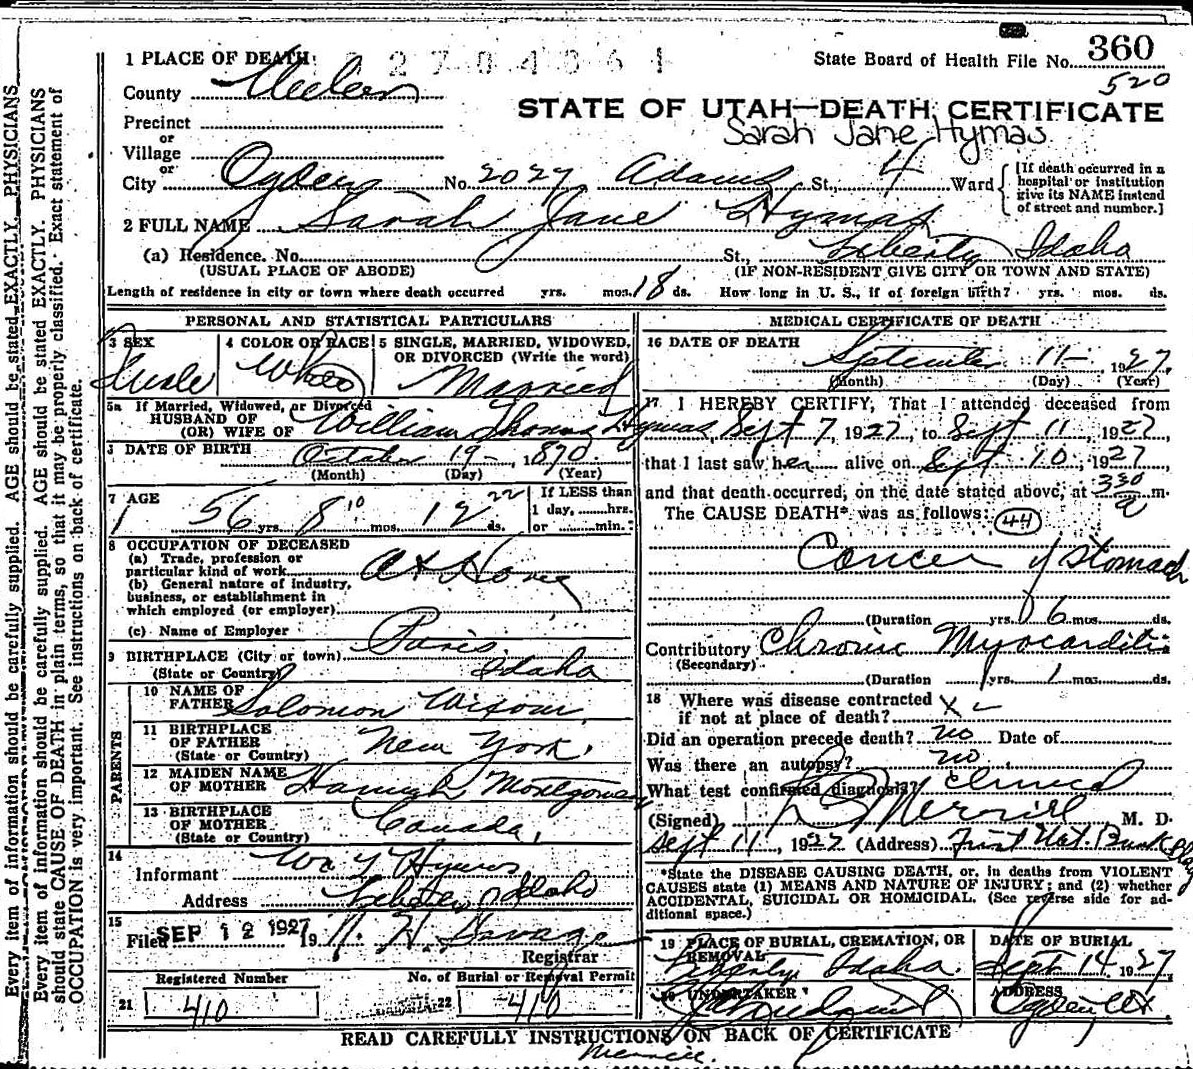 1 PLACE OF DEATH:
State Board of Health File No. 360
520
County
STATE OF UTAH—DEATH CERTIFICATE
Sarah Jane Hymas
Precinct
or
Village
or
City Ogden No. 2027 Adams St., 4 Ward
[If death occurred in a hospital or institution give its NAME instead of street and number.]
2 FULL NAME Sarah Jane Hymas
(a) Residence. No. St., Liberty Idaho
(USUAL PLACE OF ABODE) (IF NON-RESIDENT GIVE CITY OR TOWN AND STATE)
Length of residence in city or town where death occurred yrs. mos. 18 ds. How long in U. S., if of foreign birth? yrs. mos. ds.
PERSONAL AND STATISTICAL PARTICULARS
3 SEX
4 COLOR OR RACE
5 SINGLE, MARRIED, WIDOWED,
OR DIVORCED (Write the word)
Female White Married
5a If Married, Widowed, or Divorced
HUSBAND OF
(OR) WIFE OF William Thomas Hymas
DATE OF BIRTH October 19 - 1870
(Month) (Day) (Year)
7 AGE
56 yrs. 8 10 mos. 12 22 ds.
If LESS than
1 day, hrs.
or min.
8 OCCUPATION OF DECEASED
(a) Trade, profession or
particular kind of work At Home
(b) General nature of industry,
business, or establishment in
which employed (or employer)
(c) Name of Employer
9 BIRTHPLACE (City or town) Paris
(State or Country) Idaho
PARENTS
10 NAME OF
FATHER Solomon Wixom
11 BIRTHPLACE
OF FATHER New York.
(State or Country)
12 MAIDEN NAME
OF MOTHER Hannah Montgomery
13 BIRTHPLACE
OF MOTHER Canada,
(State or Country)
14
Informant Wm T Hymas
Address Liberty Idaho
15
Filed SEP 12 1927 19
Registrar
Registered Number No. of Burial or Removal Permit
21 410 22 410
MEDICAL CERTIFICATE OF DEATH
16 DATE OF DEATH
September 11 - 1927.
(Month) (Day) (Year)
17 I HEREBY CERTIFY, That I attended deceased from
Sept 7, 1927, to Sept 11, 1927,
that I last saw her alive on Sept 10, 1927
and that death occurred, on the date stated above, at 330 a m.
The CAUSE DEATH* was as follows: 44
Cancer of Stomach
(Duration yrs. 6 mos. ds.
Contributory Chronic Myocarditis
(Secondary)
(Duration yrs. 1 mos. ds.
18 Where was disease contracted
if not at place of death? X
Did an operation precede death? no Date of
Was there an autopsy? no
What test confirmed diagnosis? Clinical
(Signed) Merrill M. D.
Sept 11, 1927 (Address) First Nat. Bank Bldg
*State the DISEASE CAUSING DEATH, or, in deaths from VIOLENT
CAUSES state (1) MEANS AND NATURE OF INJURY; and (2) whether
ACCIDENTAL, SUICIDAL OR HOMICIDAL. (See reverse side for ad-
ditional space.)
19 PLACE OF BURIAL, CREMATION, OR
REMOVAL
Liberty Idaho.
DATE OF BURIAL
Sept 14 1927
20 UNDERTAKER
ADDRESS
Ogden Ut
READ CAREFULLY INSTRUCTIONS ON BACK OF CERTIFICATE
Every item of information should be carefully supplied. AGE should be stated EXACTLY. PHYSICIANS
Every item of information should be carefully supplied. AGE should be stated EXACTLY. PHYSICIANS
should state CAUSE OF DEATH in plain terms, so that it may be properly classified. Exact statement of
OCCUPATION is very important. See instructions on back of certificate.